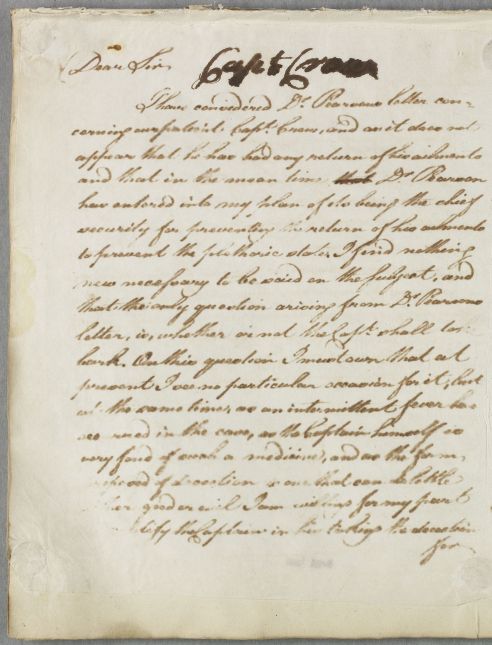 Dear Sir Capt. Craw
I have considered Dr. Pearsons letter con-
cerning our patient Capt. Craw, and as it does not
appear that he has had any return of his ailments
and that in the mean time Dr. Pearson
has entered into my plan of its being the chief
security for preventing the return of his ailments
to prevent the plethoric state. I find nothing
new necessary to be said on the subject, and
that the only question arising from Dr. Pearsons
letter, is, whether or not the Capt. shall take
bark. On this question I must own that at
present I see no particular occasion for it, but
at the same time, as an intermittent fever has
in the case, as the Captain himself is
very fond of such a medicine, and as the form
proposed of decoction is one that can do little
either good or evil I am willing for my part
the Captain in his taking the decoction
for